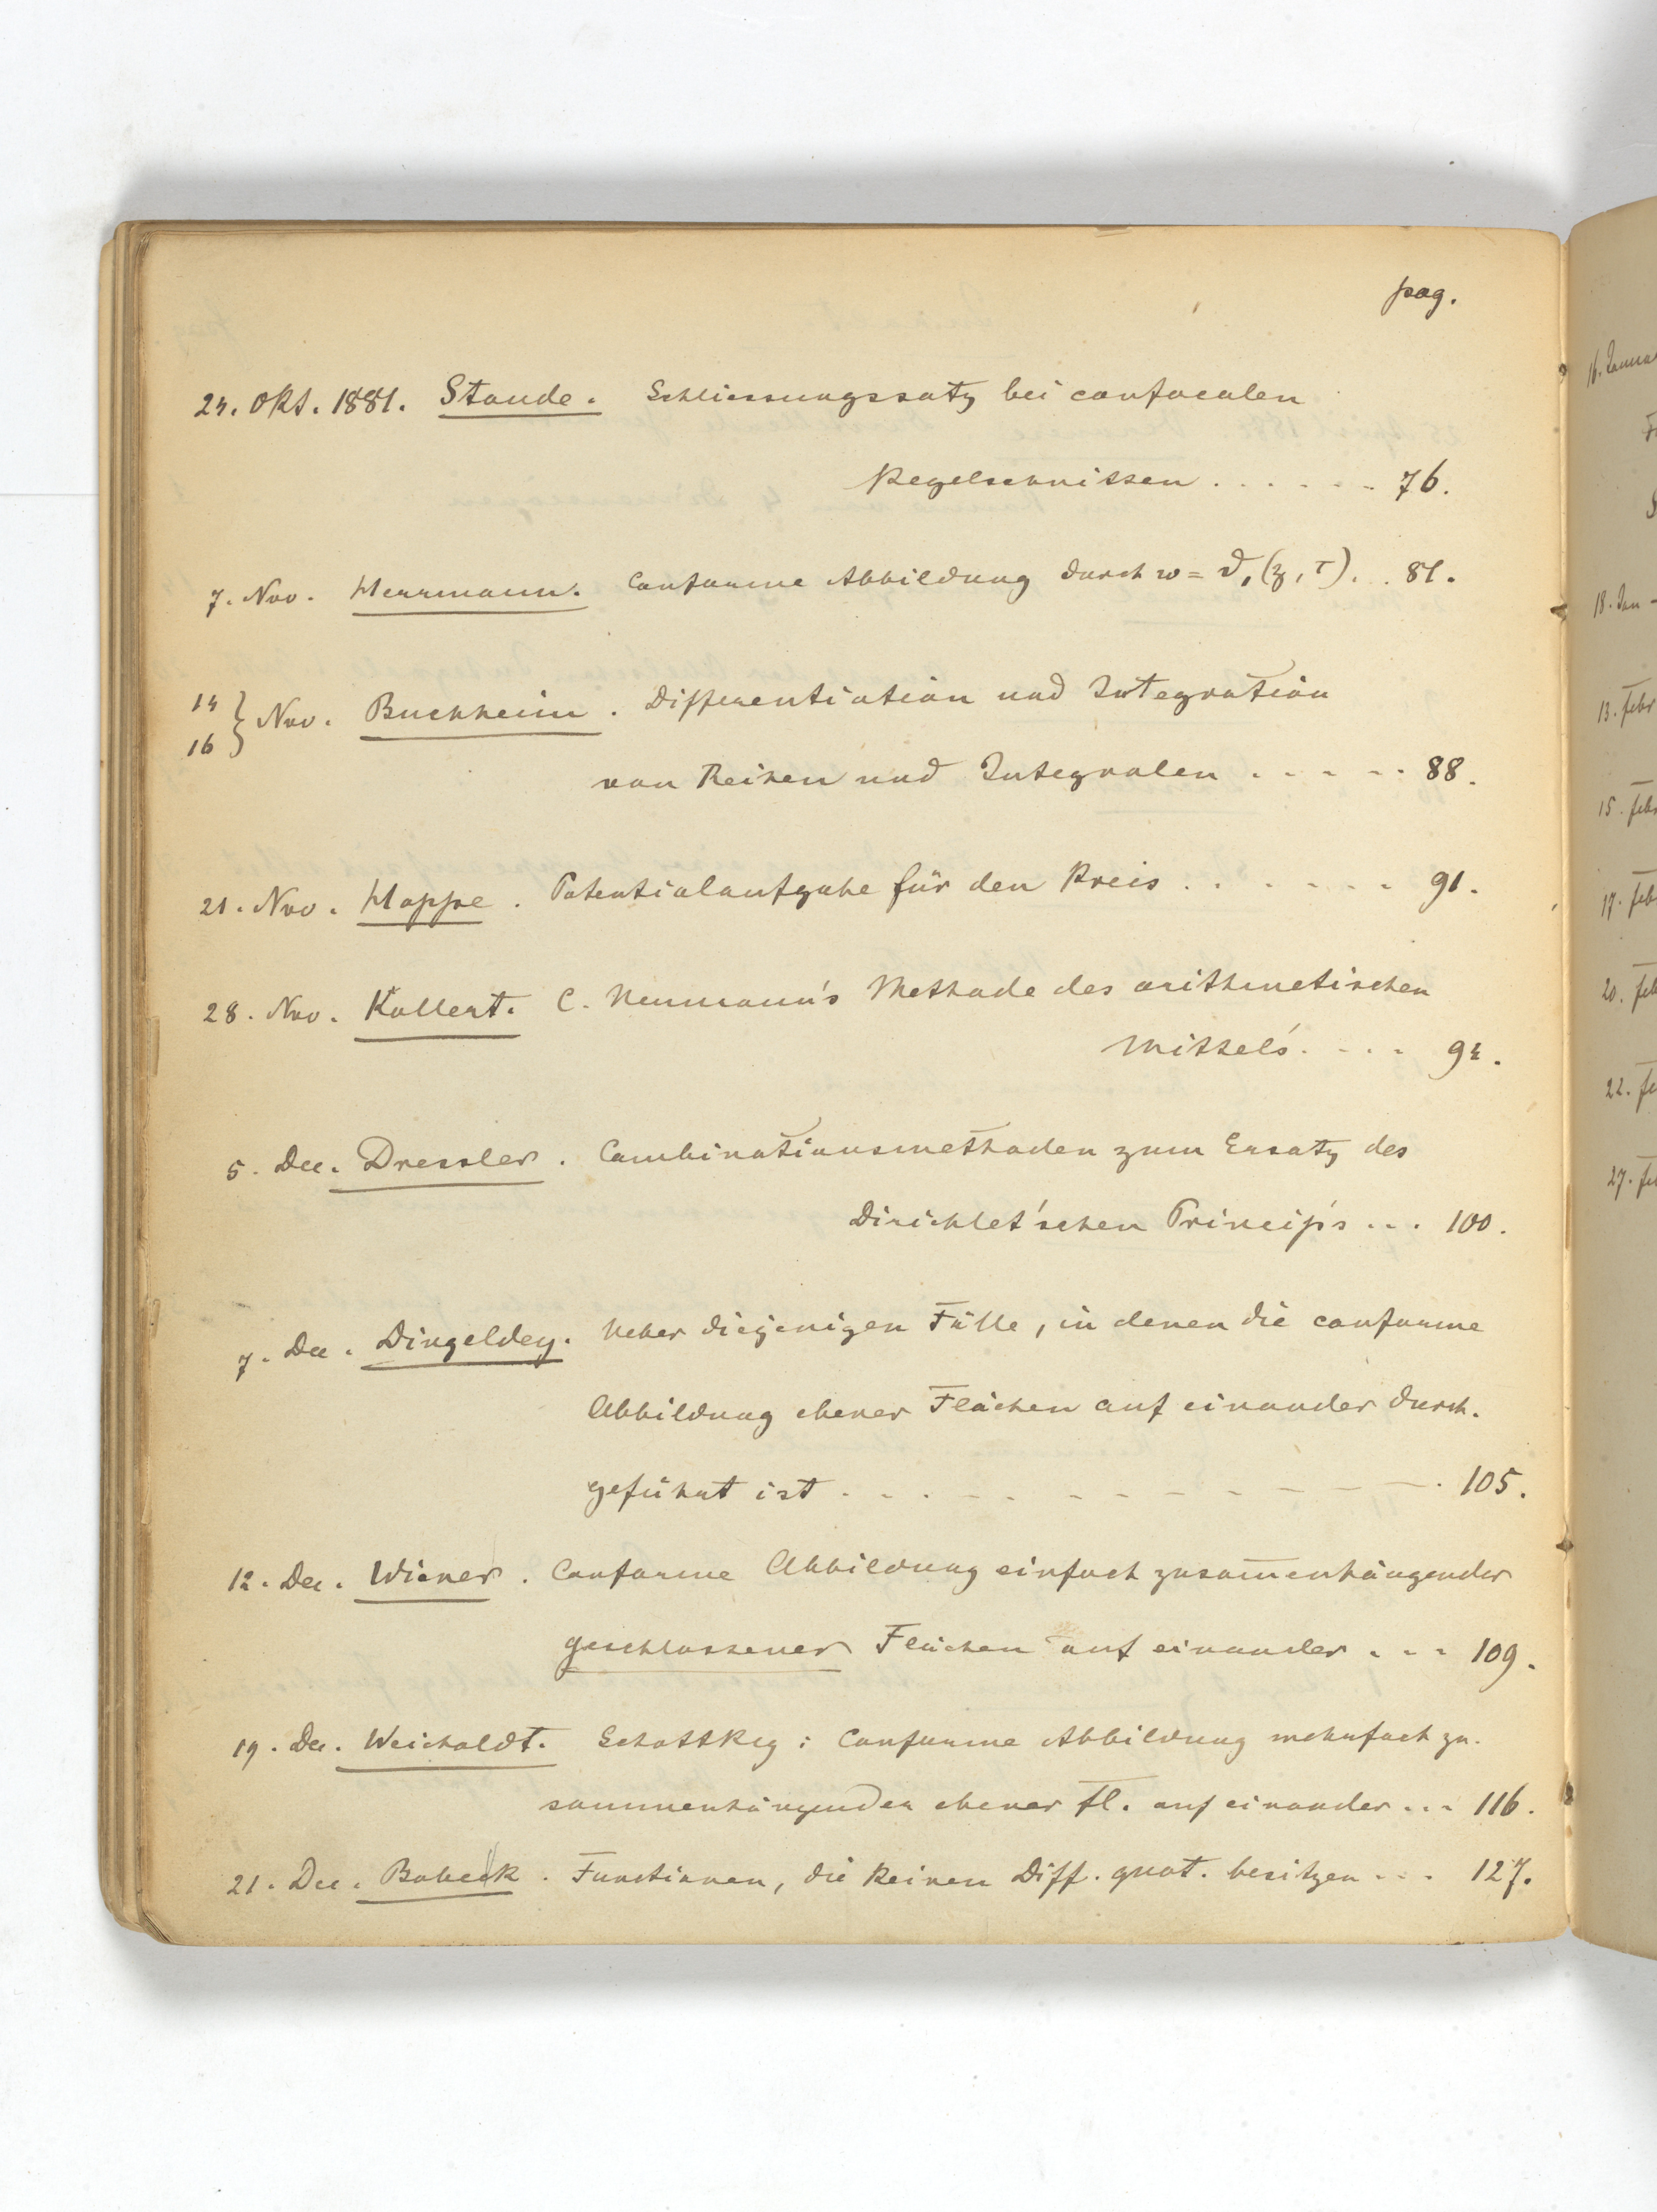 pag.
24. Okt. 1881. Staude. Schliessungssatz bei confocalen
Kegelschnitten . . . . . . 76.
7. Nov. Herrmann. Conforme Abbildung durch w = ϑ₁(z, τ). . 81.
14
16 } Nov. Buchheim. Differentiation und Integration
von Reihen und Integralen . . . . . 88.
21. Nov. Hoppe. Potentialaufgabe für den Kreis . . . . . . . 91.
28. Nov. Kollert. C. Neumann's Methode des arithmetischen
Mittels. . . . 94.
5. Dec. Dressler. Combinationsmethoden zum Ersatz des
Dirichlet'schen Princip's . . . 100.
7. Dec. Dingeldey. Ueber diejenigen Fälle, in denen die conforme
Abbildung ebener Flächen auf einander durch-
geführt ist . . . . . . . . . . . . 105.
12. Dec. Wiener. Conforme Abbildung einfach zusam̅enhängender
geschlossener Flächen auf einander . . . 109.
19. Dec. Weicholdt. Schottky: Conforme Abbildung mehrfach zu-
sammenhängender ebener Fl. auf einander . . . 116.
21. Dec. Bobek. Functionen, die keinen Diff. quot. besitzen . . . 127.
16. Janua
18. Jan
13. Febr
15. Feb
17. Feb
20. Feb
22. Fe
27. Fe